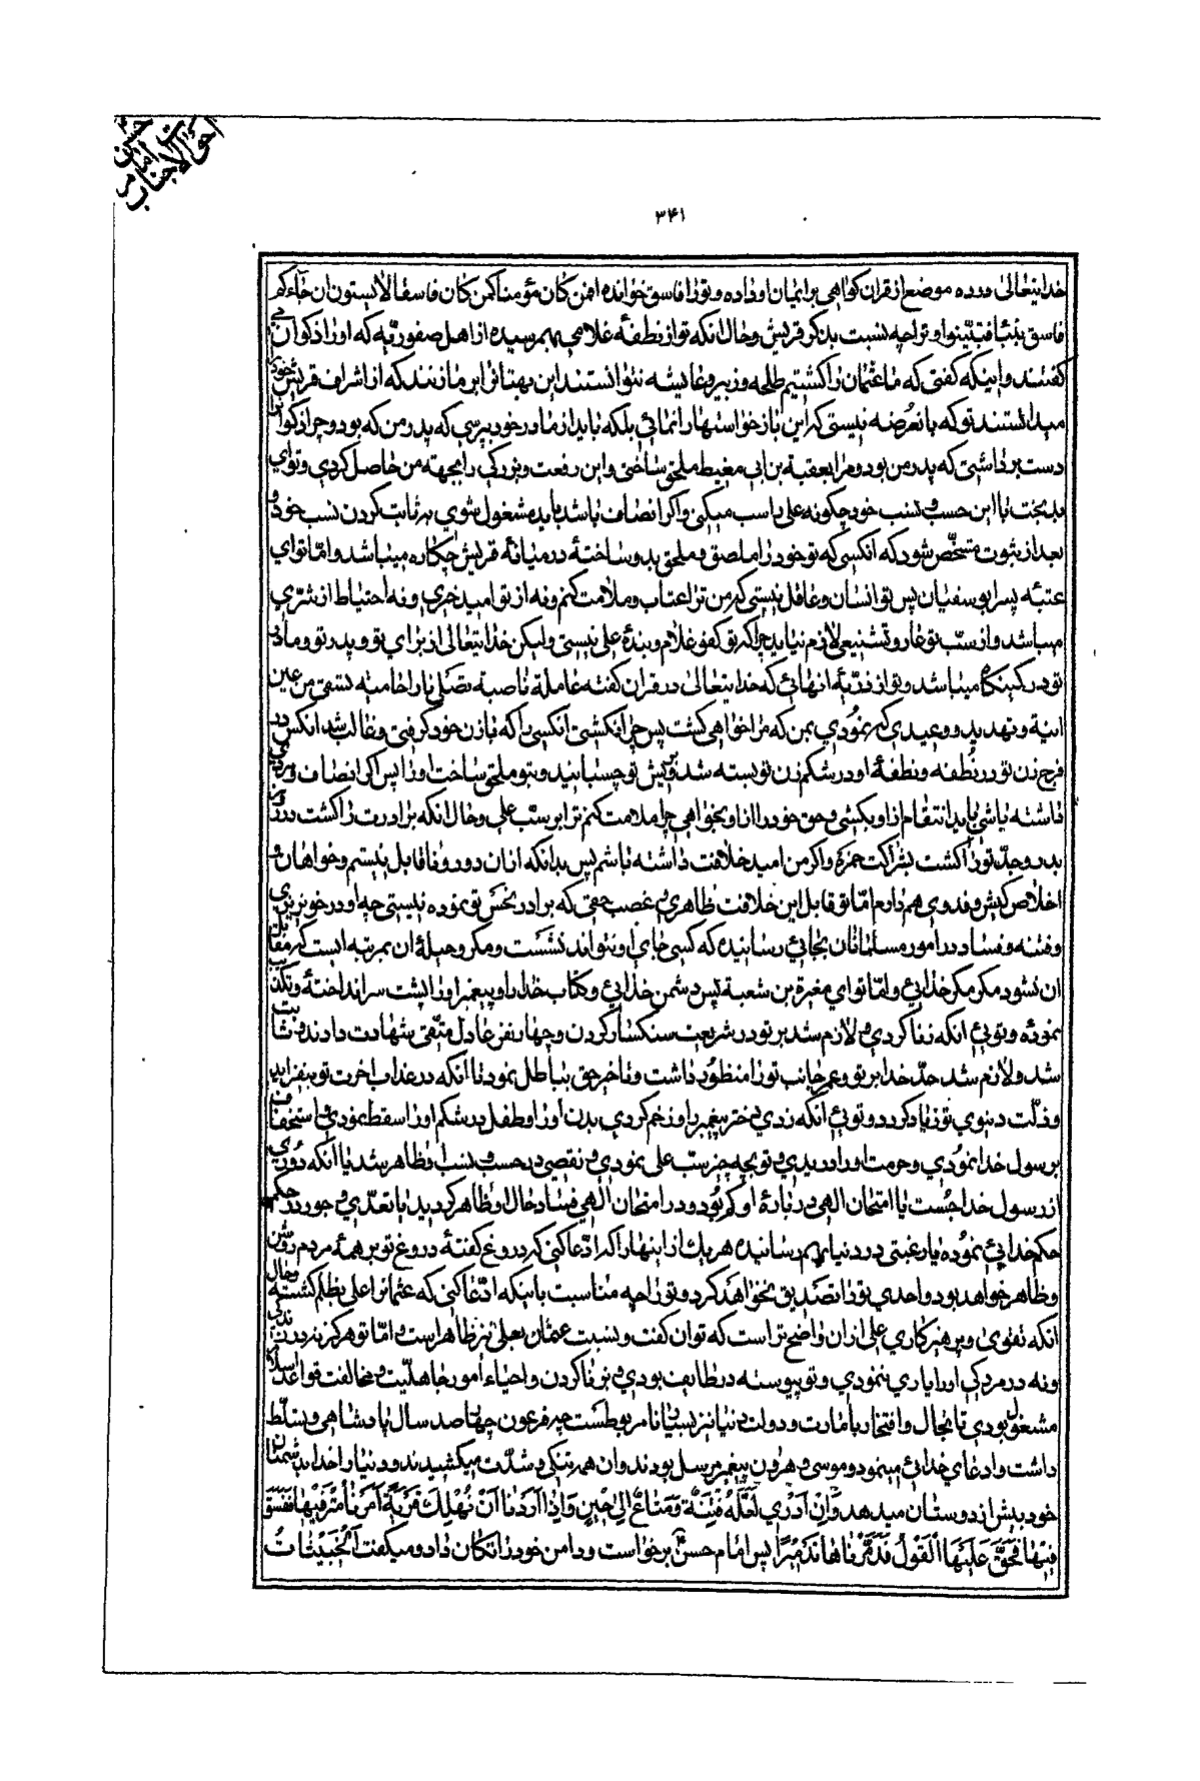 ۳۴۱
خدایتعالی در ده موضع از قران کواهی بر ایمان او داده و تورا فاسق خوانده افمن کان مؤمنا کمن کان فاسقا لا یستون ان جاءکم
فاسق بنبأ فتبینوا و ترا چه نسبت بذکر قریش و حال انکه تو از نطفهٔ غلامی بهمرسیده از اهل صفوریه که او را ذکوان می
کفتند و اینکه کفتی که ما عثمان را کشتیم طلحه و زبیر و عایشه نتوانستند این بهتانرا بر ما زنند که از اشراف قریش خود را
میدانستند تو که بانعُرضه نیستی که این بازخواستها را نمائی بلکه باید از مادر خود بپرسی که پدر من که بود و چرا از ذکوان
دست برداشتی که پدر من بود و مرا بعقبة بن ابی مغیط ملحق ساختی و این رفعت و بزرکی را بجهة من حاصل کردی و تو ای
بدبخت با این حسب و نسب خود چکونه علی را سب میکنی و اکر انصاف باشد باید مشغول شوی به ثابت کردن نسب خود و
بعد از ثبوت مشخّص شود که انکسی که تو خود را ملصق و ملحق بدو ساختهٔ در میانهٔ قریش چکاره میباشد و امّا تو ای
عتبه پسر ابو سفیان پس تو انسان و عاقل نیستی که من ترا عتاب و ملامت کنم و نه از تو امید خیری و نه احتیاط از شرّی
میباشد و از سبّ تو عار و تشنیعی لازم نیاید چرا که تو کفو غلام و بندهٔ علی نیستی ولیکن خدایتعالی از برای تو و پدر تو و مادر
تو در کمینکاه میباشد و تو از ذرّیهٔ انهائی که خدایتعالی در قران کفته عاملة ناصبة تصلی نارا حامیه تسقی من عین
انیة و تهدید و وعیدی که نمودی بمن که مرا خواهی کشت پس چرا نکشتی انکسی را که با زن خود کرفتی و غالب شد انکس در
فرج زن تو در نُطفه و نطفهٔ او در شکم زن تو بسته شد و بریش تو چسبانید و بتو ملحق ساخت او را پس اکر انصاف و مردی
داشته باشی باید انتقام از او بکشی و حق خود را از او بخواهی چرا ملامت کنم ترا بر سبّ علی و حال انکه برادرت را کشت در روز
بدر و جدّ تورا کشت بشراکت حمزه و اکر من امید خلافت داشته باشم پس بدانکه ازان دور و ناقابل نیستم و خواهان و
اخلاص کیش و فدوی هم دارم امّا تو قابل این خلافت ظاهری و غصب حقی که برادر نحس تو نموده نیستی چه او در خونریزی
و فتنه و فساد در امور مسلمانان بجائی رسانیده که کسی جای او نتواند نشست و مکر و حیلهٔ ان بمرتبه ایست که مقابل
ان نشود مکر مکر خدائی و امّا تو ای مغیرة بن شعبة پس دشمن خدائی و کتاب خدا را و پیغمبر او را پشت سر انداخته و تکذیب
نمودهٔ و توئی انکه زنا کردی و لازم شد بر تو در شریعت سنکسار کردن و چهار نفر عادل متّقی شهادت دادند و ثابت
شد و لازم شد حدّ خدا بر تو و عمر جانب تورا منظور داشت و تاخیر حق بباطل نمود تا انکه در عذاب اخرت تو بیفزاید
و ذلّت دنیوی تو زیاد کردد و توئی انکه زدی دختر پیغمبر را و زخم کردی بدن او را و طفل در شکم او را سقط نمودی و استخفاف
برسول خدا نمودی و حرمت او را دریدی و تو بچه چیز سبّ علی نمودی و نقصی در حسب و نسب او ظاهر شد یا آنکه دوری
از رسول خدا جُست یا امتحان الهی در بارهٔ او کم بُود و در امتحان الهی فساد حال او ظاهر کردید یا تعدّی و جور در حکم
حکم خدائی نموده یا رغبتی در دنیا بهمرسانیده هر یك از اینها را که ادّعا کنی که دروغ کفتهٔ دروغ تو بر همهٔ مردم روشن
و ظاهر خواهد بود و احدی تورا تصدیق نخواهد کرد و تورا چه مناسبت باینکه ادّعا کنی که عثمانرا علی بظلم کشته و حال
آنکه تقوی و پرهیزکاری علی ازان واضح تر است که توان کفت و نسبت عثمان بعلی نیز ظاهر است و امّا تو هرکز نه در زندکی
و نه در مردکی او را یاری ننمودی و تو پیوسته در طایف بودی و بزنا کردن و احیاء امور جاهلیّت و مخالفت قواعد اسلام
مشغول بودی تا بحال و افتخار بامارت و دولت دنیا نیز بسیار نامربوطست چه فرعون چهارصد سال پادشاهی و تسلّط
داشت و ادعای خدائی مینمود و موسی و هرون پیغمبر مرسل بودند و ان همه تنکی و شدّت میکشیدند و دنیا را خدا بدشمنان
خود بیش از دوستان میدهد وَإِنْ أَدْرِي لَعَلَّهُ فِتْنَةٌ وَمَتَاعٌ إِلَى حِينٍ وَإِذَا أَرَدْنَا أَنْ نُهْلِكَ قَرْيَةً أَمَرْنَا مُتْرَفِيهَا فَفَسَقُوا
فِيهَا فَحَقَّ عَلَيْهَا الْقَوْلُ فَدَمَّرْنَاهَا تَدْمِيرًا پس امام حسنؑ برخواست و دامن خود را تکان داد و میکفت الْخَبِيثَاتُ